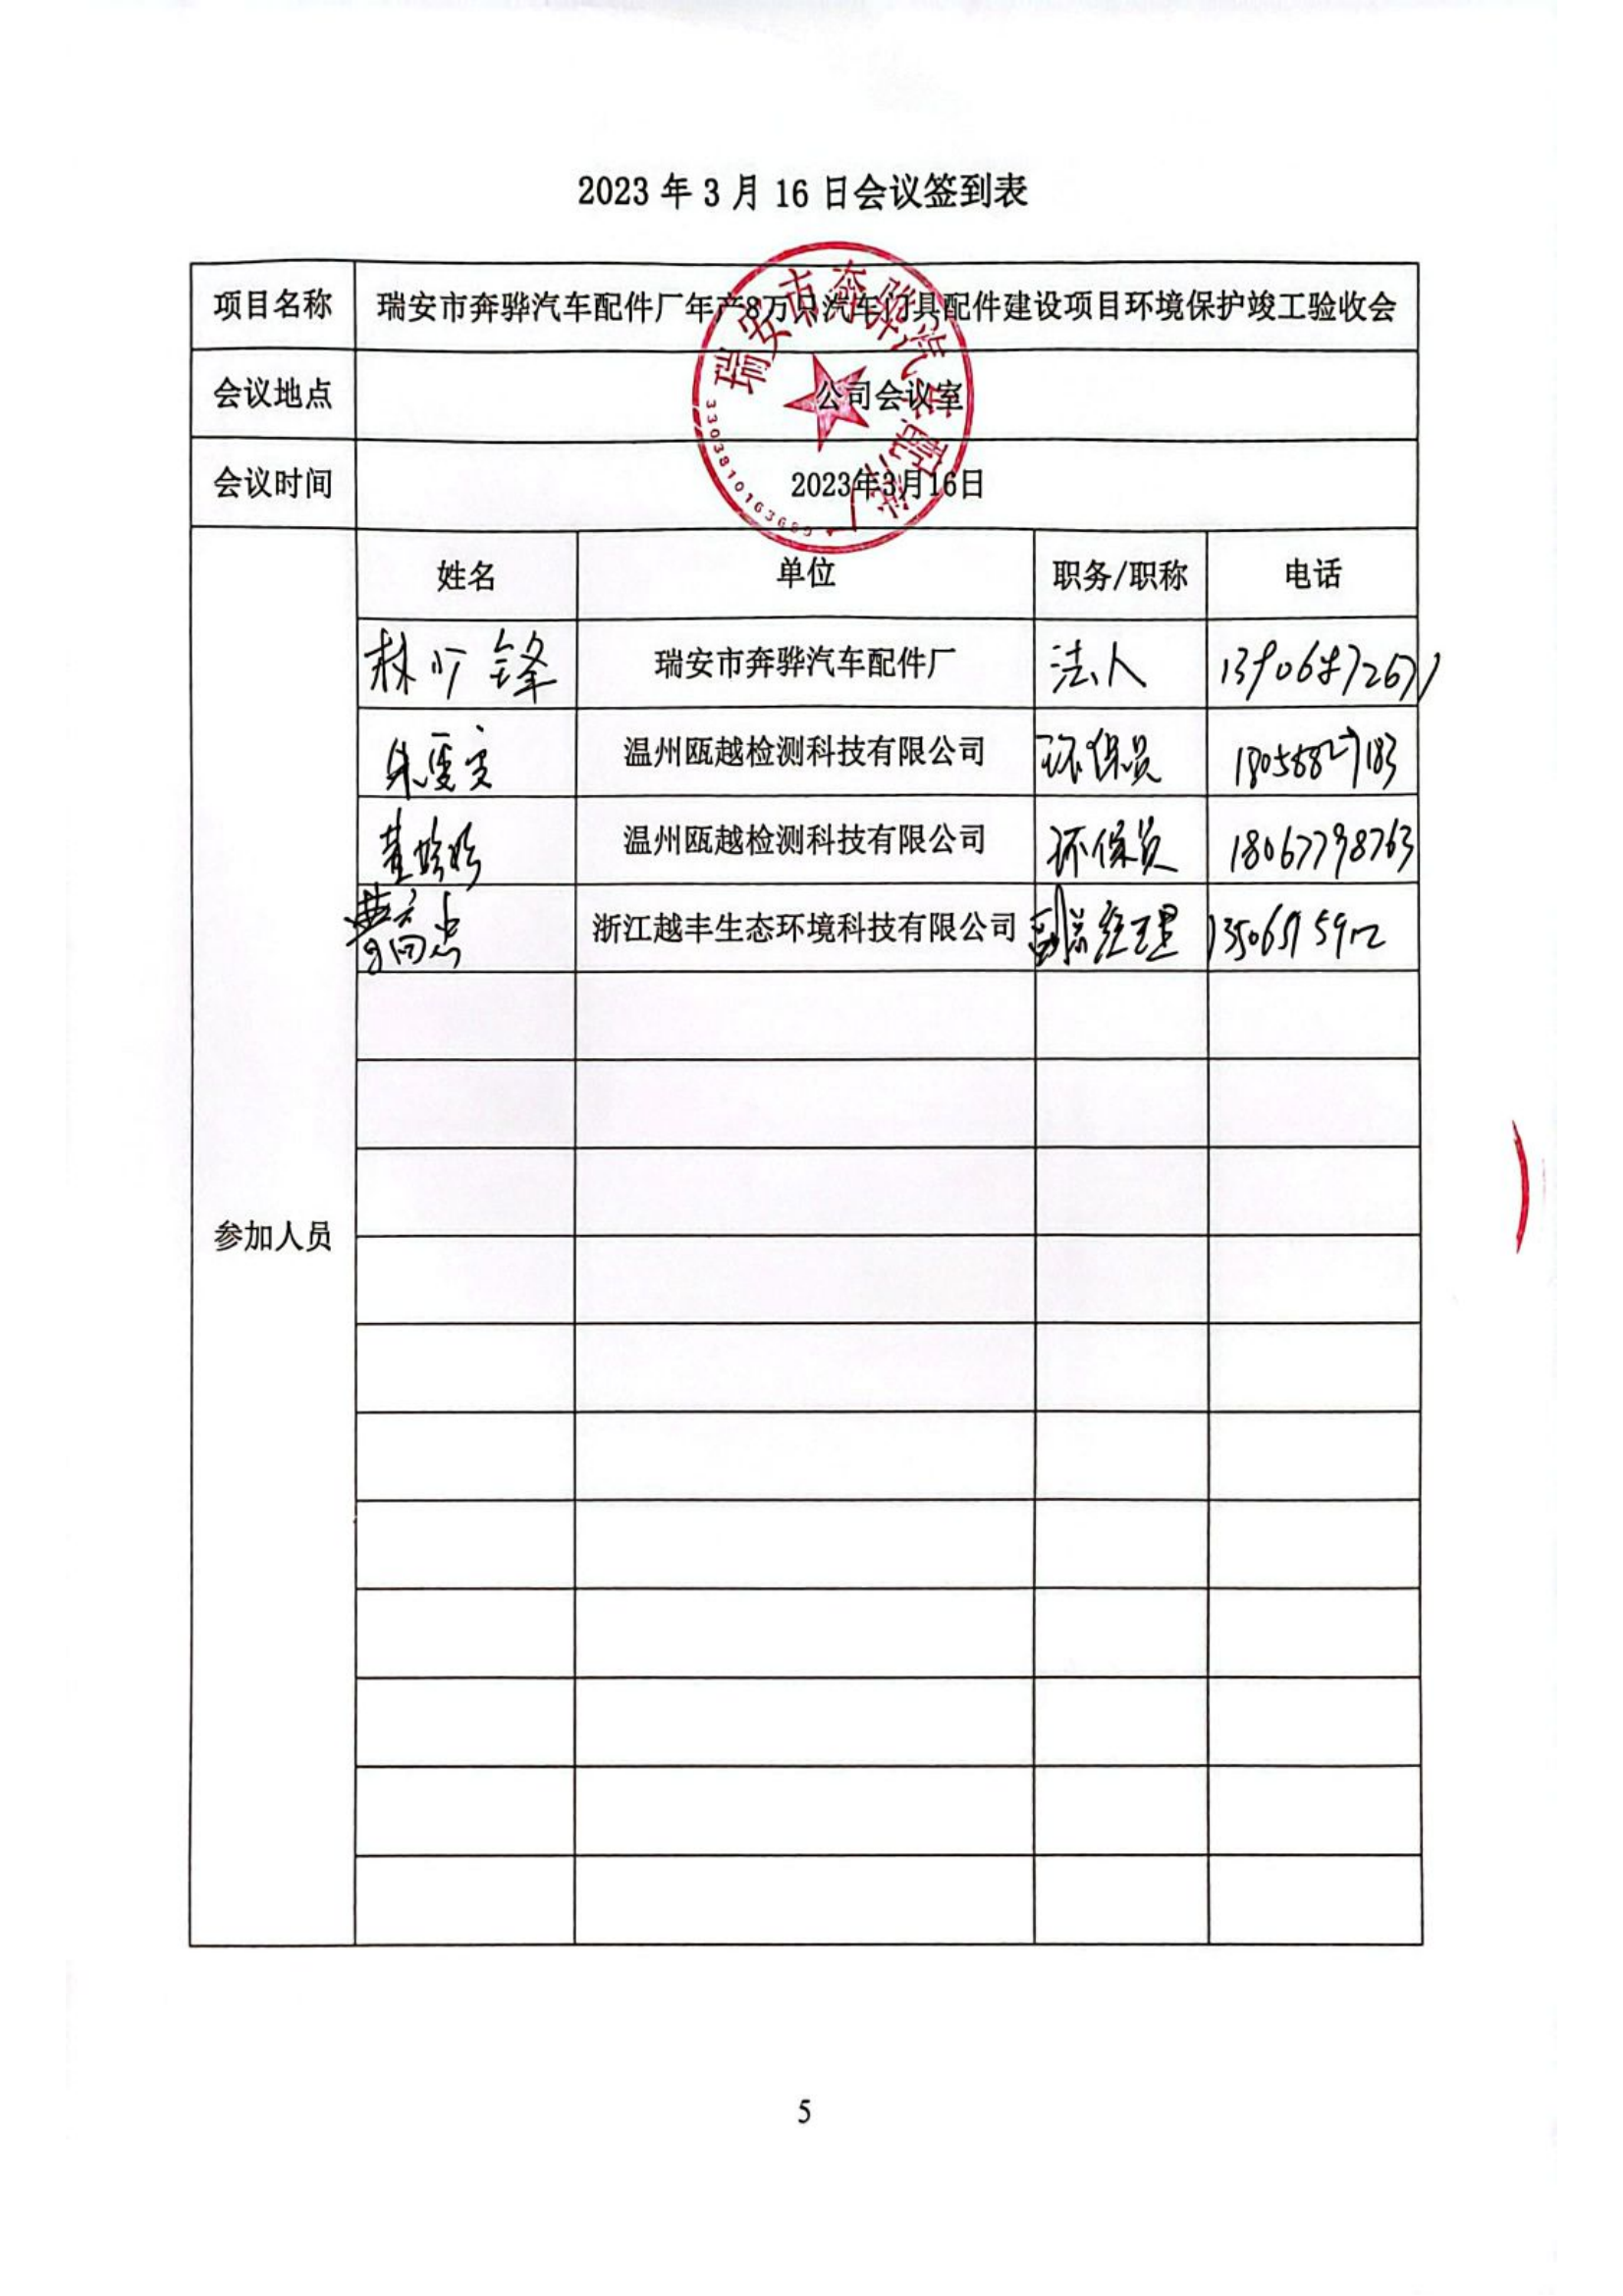 2023 年 3 月 16 日会议签到表
项目名称 瑞安市奔骅汽车配件厂年产8万只汽车门具配件建设项目环境保护竣工验收会
会议地点 公司会议室
会议时间 2023年3月16日
瑞安市奔骅汽车配件厂
3303810163600
参加人员
姓名 单位 职务/职称 电话
林 锋 瑞安市奔骅汽车配件厂 法人
朱 温州瓯越检测科技有限公司 环保员
温州瓯越检测科技有限公司 环保员 18067798763
浙江越丰生态环境科技有限公司 副总经理
5